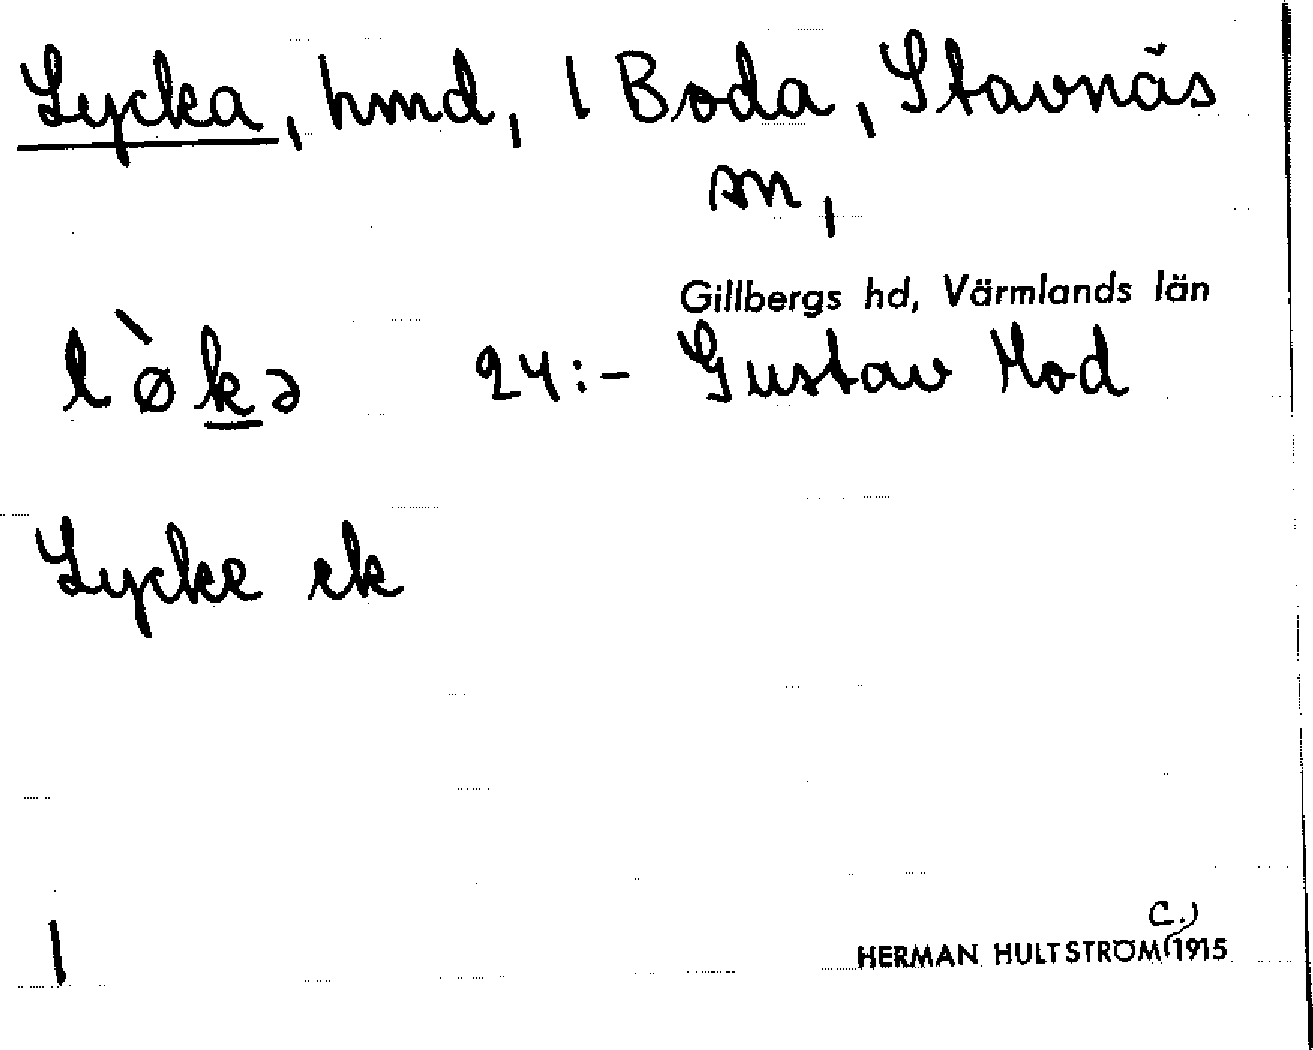 Lycka, hmd, 1 Boda, Stavnäs
sn,
Gillbergs hd, Värmlands län
l ̀økə 24:- Gustav Mod
Lycke ek
1
c.)
HERMAN HULTSTRÖM (1915